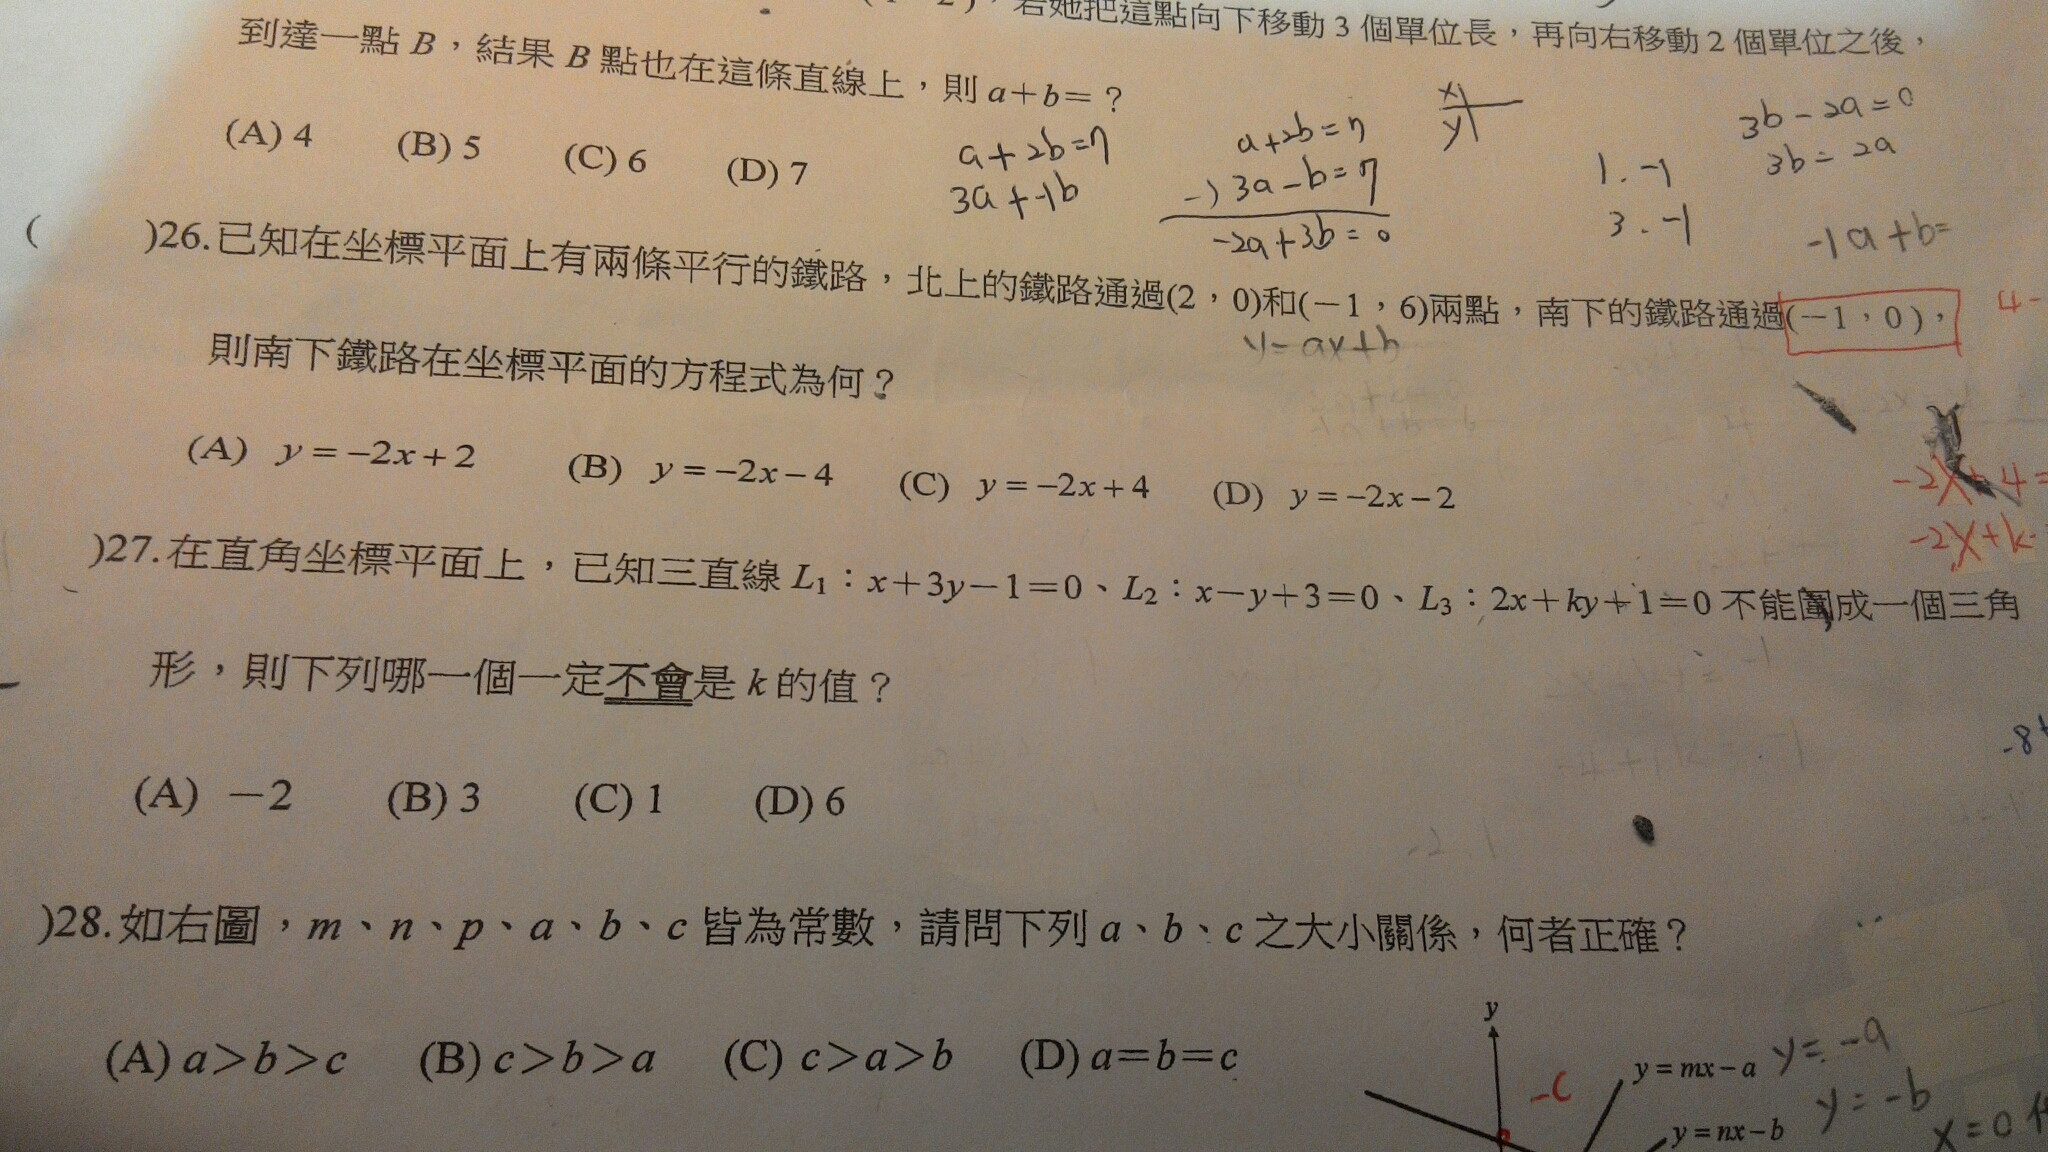 若她把這點向下移動 3 個單位長，再向右移動 2 個單位之後，
到達一點 B，結果 B 點也在這條直線上，則 a＋b＝？
(A) 4 (B) 5 (C) 6 (D) 7
a+2b=7
3a+-1b
a+2b=7
-) 3a-b=7
-2a+3b=0
x
y
1.-1
3.-1
3b-2a=0
3b=2a
-1a+b=
( )26.已知在坐標平面上有兩條平行的鐵路，北上的鐵路通過(2，0)和(－1，6)兩點，南下的鐵路通過(－1，0)，
4-
y=ax+b
則南下鐵路在坐標平面的方程式為何？
(A) y=−2x+2 (B) y=−2x−4 (C) y=−2x+4 (D) y=−2x−2
-2x+4=
-2x+k-
)27.在直角坐標平面上，已知三直線 L₁：x＋3y－1＝0、L₂：x－y＋3＝0、L₃：2x＋ky＋1＝0 不能圍成一個三角
形，則下列哪一個一定不會是 k 的值？
-8+
(A) －2 (B) 3 (C) 1 (D) 6
)28.如右圖，m、n、p、a、b、c 皆為常數，請問下列 a、b、c 之大小關係，何者正確？
(A) a＞b＞c (B) c＞b＞a (C) c＞a＞b (D) a＝b＝c
y
-c
y=mx−a
y=-a
y=nx−b
y=-b
x=0